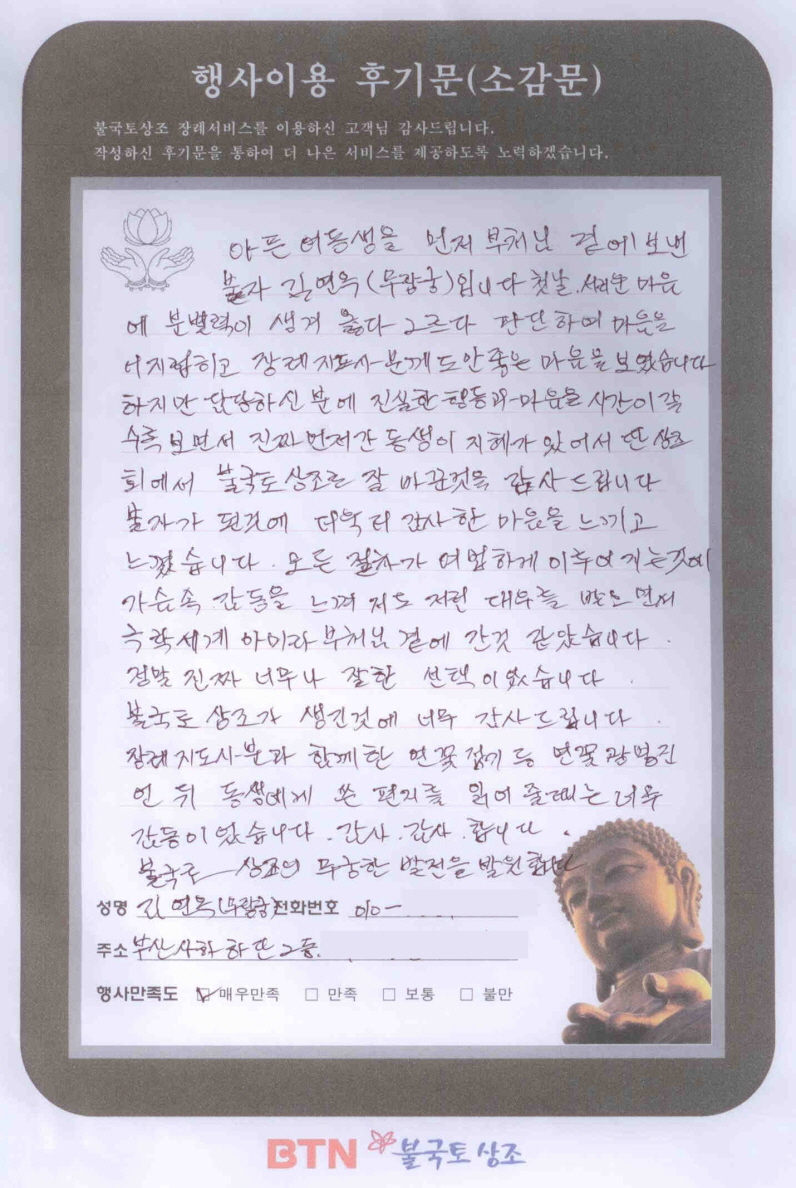 행사이용 후기문(소감문)
불국토상조 장례서비스를 이용하신 고객님 감사드립니다.
작성하신 후기문을 통하여 더 나은 서비스를 제공하도록 노력하겠습니다.
아픈 여동생을 먼저 부처님 곁에 보낸
불자 김연옥(무량궁)입니다 첫날, 서러운 마음
에 분별력이 생겨 옳다 그르다 판단하여 마음을
어지럽히고 장례지도사분께도 안좋은 마음을 보였습니다
하지만 담당하신 분에 진실한 행동과 마음을 시간이 갈
수록 보면서 진짜 먼저간 동생이 지혜가 있어서 딴 상조
회에서 불국토상조로 잘 바꾼것을 감사드립니다
불자가 된것에 더욱더 감사한 마음을 느끼고
느꼈습니다. 모든 절차가 여법하게 이루어 지는것에
가슴속 감동을 느껴지도 저런 대우를 받으면서
극락세계 아미타 부처님 곁에 간것 같았습니다.
정말 진짜 너무나 잘한 선택이었습니다.
불국토 상조가 생긴것에 너무 감사드립니다.
장례지도사분과 함께한 연꽃접기 등 연꽃 광명진
언 뒤 동생에게 쓴 편지를 읽어 줄때는 너무
감동이었습니다. 감사. 감사. 합니다.
불국토 상조의 무궁한 발전을 발원합니다
성명 김연옥(무량궁) 전화번호 010-
주소 부산 사하 하단2동.
행사만족도 ☑ 매우만족 □ 만족 □ 보통 □ 불만
BTN 불국토상조